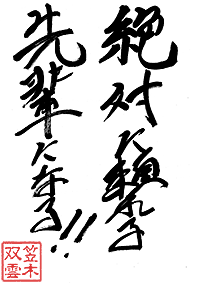 絶対に頼れる
先輩になる!!
笠木
双雲